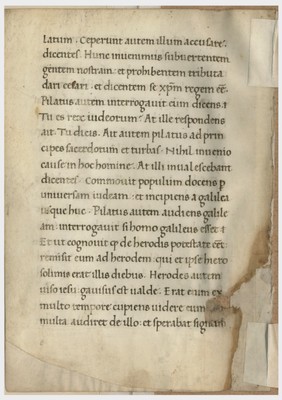 latum. Ceperunt autem illum accusare.
dicentes. Hunc inuenimus subuertentem
gentem nostram. et prohibentem tributa
dari cesari. et dicentem se xp̄m regem eē.
Pilatus autem interrogauit eum dicens.
Tu es rex iudeorum? At ille respondens
ait. Tu dicis. Ait autem pilatus ad prin
cipes sacerdotum et turbas. Nihil inuenio
cause in hoc homine. At illi inualescebant
dicentes. Commouit populum docens p
uniuersam iudeam. et incipiens a galilea
usque huc. Pilatus autem audiens galile
am. interrogauit si homo galileus esset.
Et ut cognouit qđ de herodis potestate eēt.
remisit eum ad herodem. qui et ipse hiero
solimis erat illis diebus. Herodes autem
uiso iesu. gauisus est ualde. Erat enim ex
multo tempore cupiens uidere eum.
multa audiret de illo. et sperabat signum